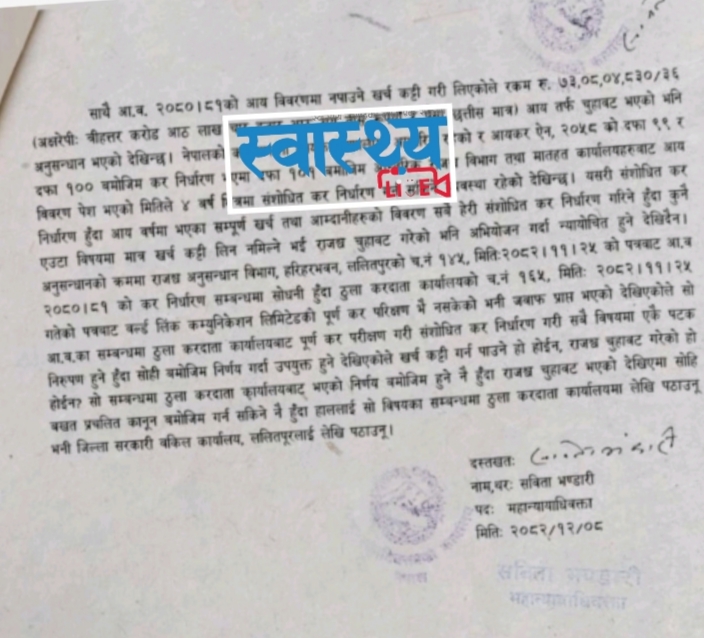 साथै आ.व. २०८०।८१को आय विवरणमा नपाउने खर्च कट्टी गरी लिएकोले रकम रु. ७३,०८,०४,८३०/३६
(अक्षरेपीः त्रीहत्तर करोड आठ लाख छत्तीस मात्र) आय तर्फ चुहावट भएको भनि
अनुसन्धान भएको देखिन्छ। नेपालको को र आयकर ऐन, २०५८ को दफा ९९ र
दफा १०० बमोजिम कर निर्धारण दफा १०१ बमोजिम विभाग तथा मातहत कार्यालयहरुबाट आय
विवरण पेश भएको मितिले ४ वर्ष संशोधित कर निर्धारण व्यवस्था रहेको देखिन्छ। यसरी संशोधित कर
निर्धारण हुँदा आय वर्षमा भएका सम्पूर्ण खर्च तथा आम्दानीहरुको विवरण सबै हेरी संशोधित कर निर्धारण गरिने हुँदा कुनै
एउटा विषयमा मात्र खर्च कट्टी लिन नमिल्ने भई राजश्व चुहावट गरेको भनि अभियोजन गर्दा न्यायोचित हुने देखिदैन।
अनुसन्धानको क्रममा राजश्व अनुसन्धान विभाग, हरिहरभवन, ललितपुरको च.नं १४५, मितिः२०८२।११।२५ को पत्रबाट आ.व
२०८०।८१ को कर निर्धारण सम्बन्धमा सोधनी हुँदा ठुला करदाता कार्यालयको च.नं १६५, मितिः २०८२।११।२५
गतेको पत्रबाट वर्ल्ड लिंक कम्युनिकेशन लिमिटेडको पूर्ण कर परिक्षण भै नसकेको भनी जवाफ प्राप्त भएको देखिएकोले सो
आ.व.का सम्बन्धमा ठुला करदाता कार्यालयबाट पूर्ण कर परीक्षण गरी संशोधित कर निर्धारण गरी सबै विषयमा एकै पटक
निरुपण हुने हुँदा सोही बमोजिम निर्णय गर्दा उपयुक्त हुने देखिएकोले खर्च कट्टी गर्न पाउने हो होईन, राजश्व चुहावट गरेको हो
होईन? सो सम्बन्धमा ठुला करदाता कार्यालयबाट भएको निर्णय बमोजिम हुने नै हुँदा राजश्व चुहावट भएको देखिएमा सोहि
बखत प्रचलित कानून बमोजिम गर्न सकिने नै हुँदा हाललाई सो विषयका सम्बन्धमा ठुला करदाता कार्यालयमा लेखि पठाउनू
भनी जिल्ला सरकारी वकिल कार्यालय, ललितपूरलाई लेखि पठाउनू।
स्वास्थ्य
दस्तखतः
नाम,थरः सविता भण्डारी
पदः महान्यायाधिवक्ता
मितिः २०८२/१२/०८
सविता भण्डारी
महान्यायाधिवक्ता